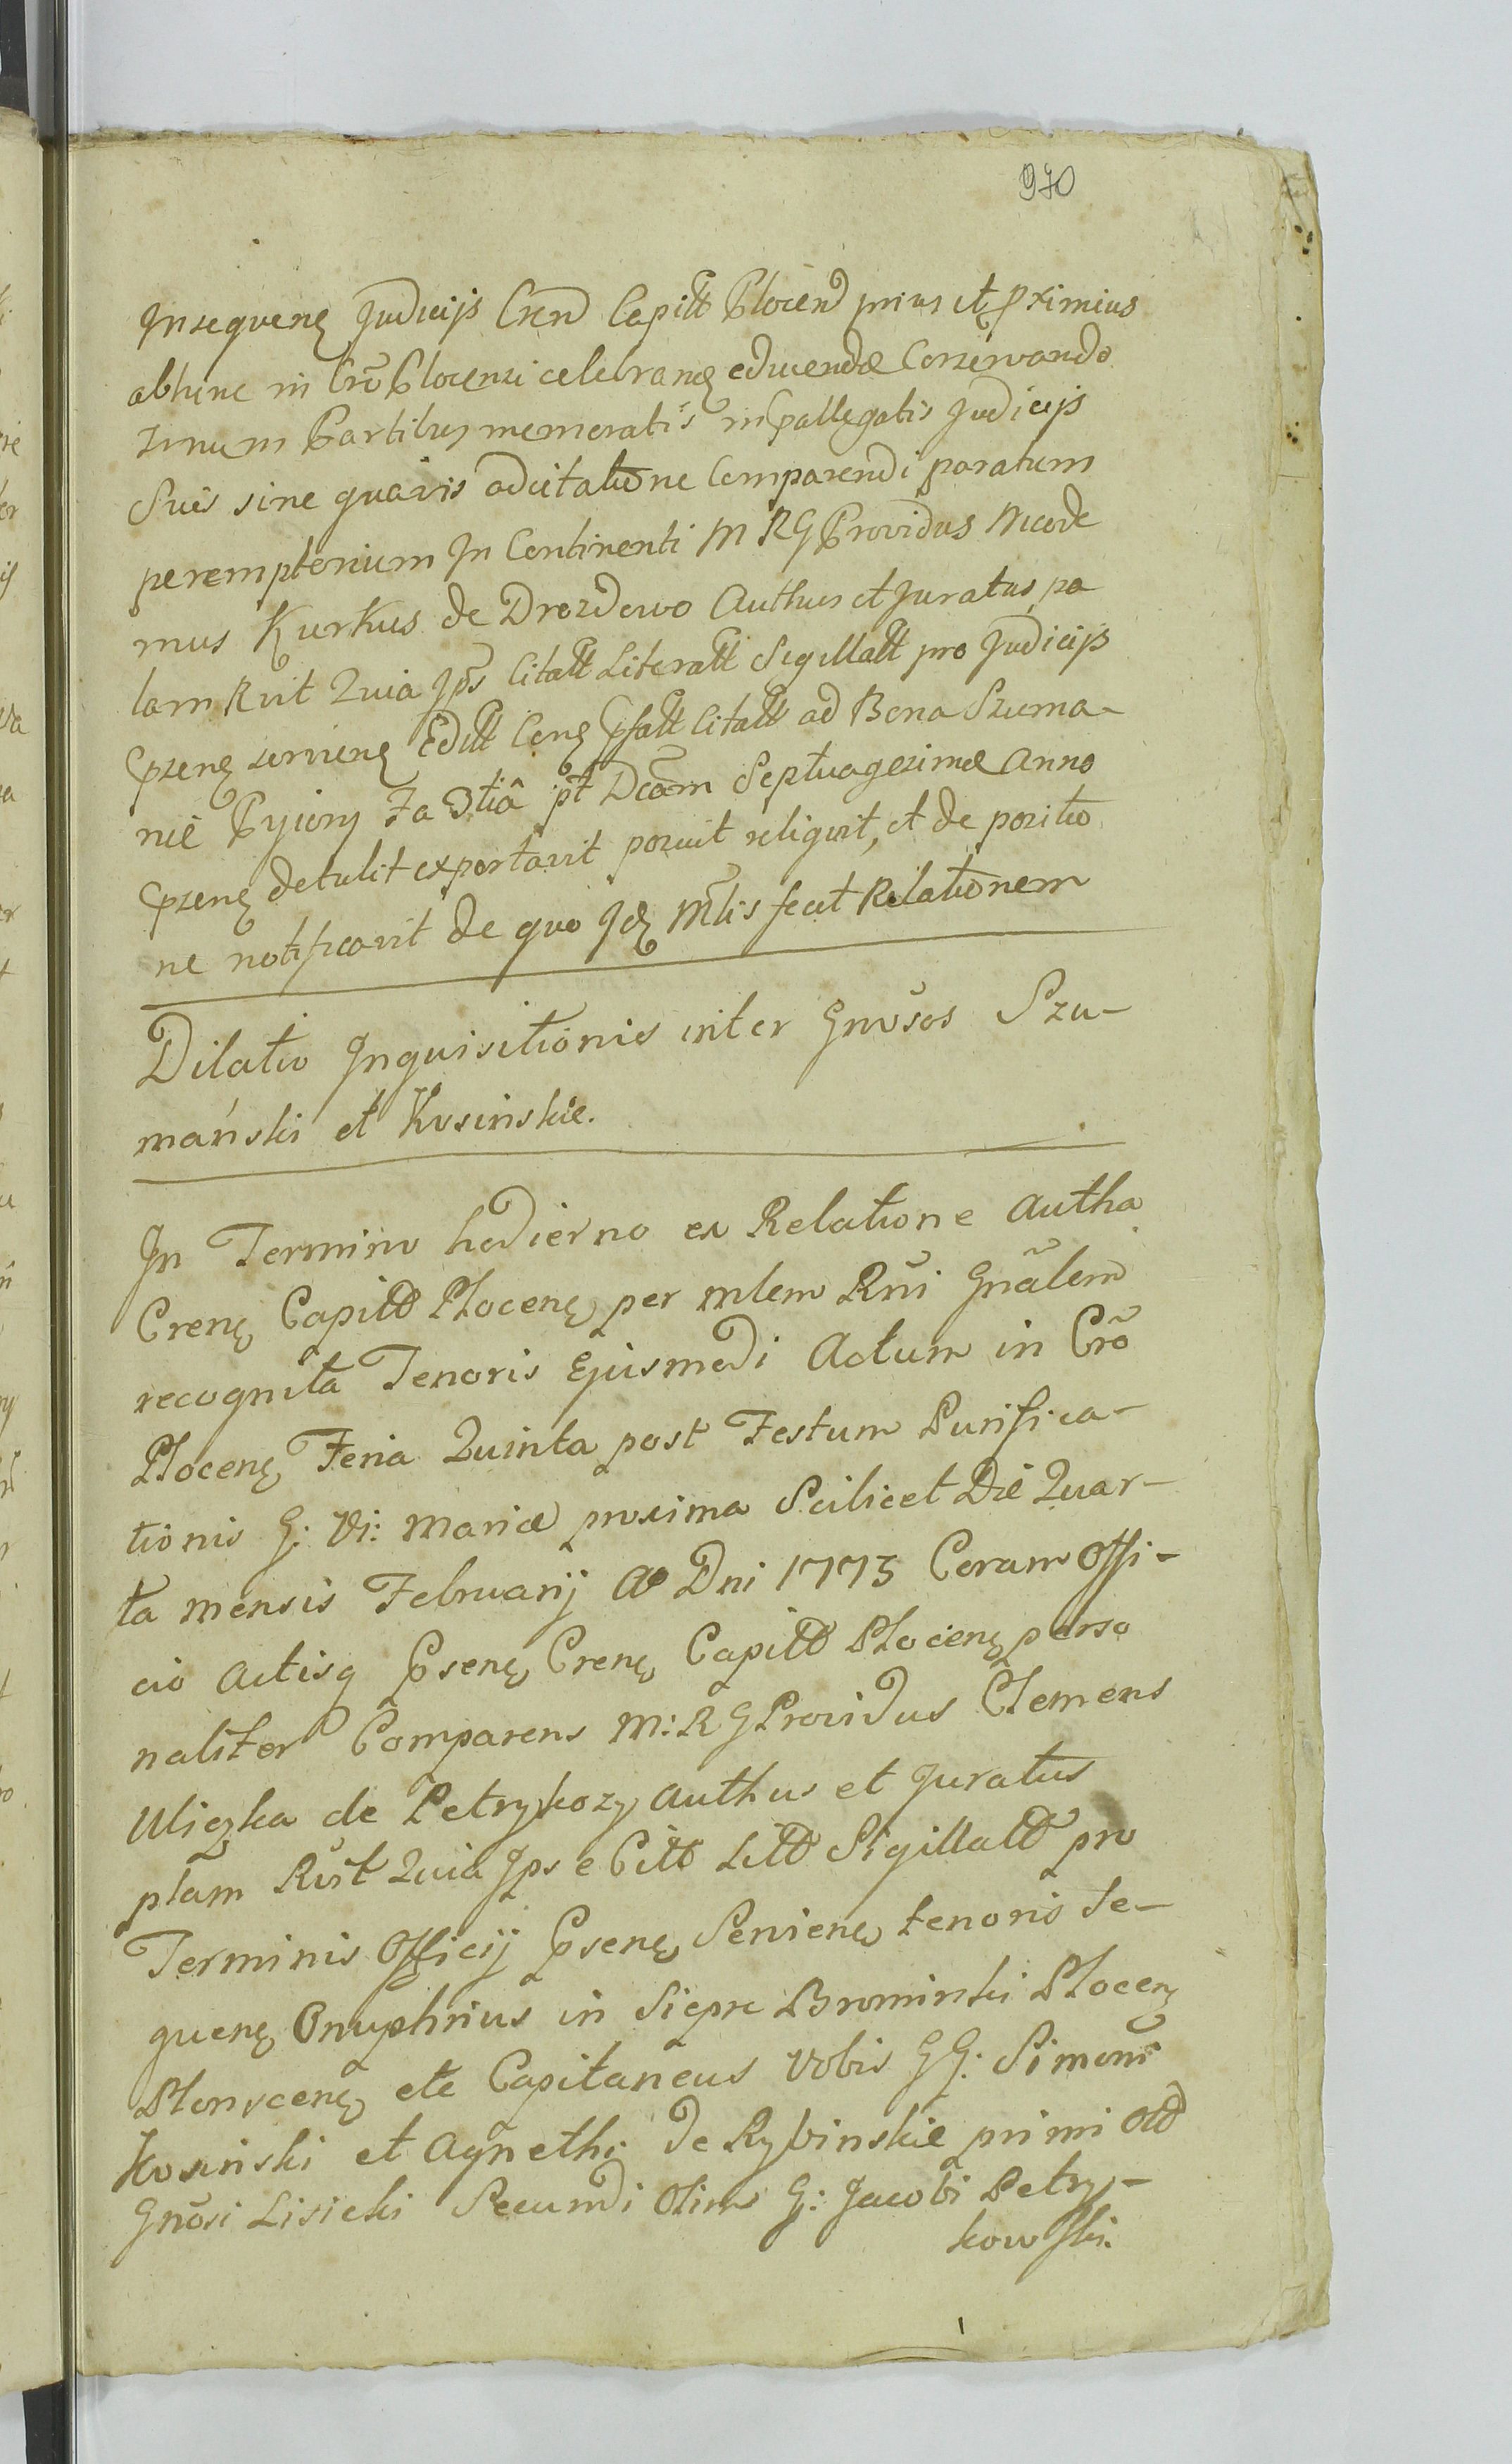 970
Insequenę Judicijs Cren Capitt Plocen prius et pximius
abhinc in Crõ Plocensi celebranę educendæ Conservando
rnum Partibus memoratis in pallegatis Judicijs
Suis sine quavis adcitatione Comparendi paratum
peremptorium In Continenti M R G Providus Nicode
mus Kurkus de Drozdowo Authus et Juratus, pa
lam Rvit Quia Ips Citatt Literatt Sigillatt pro Judicijs
Pzenę servienę Editt Cenę Psatt Citatt ad Bona Szuma-
nie Pyiory Fa 3tiâ pt Dcãm Septuagesimæ Anno
Pzenę detulit exportavit posuit reliquit, et de positio
ne notificavit de quo Idę Mtlis fecit Relationem
Dilatio Inquisitionis inter Gnõsos Szu-
mański et Kosinskie.
In Termino hodierno ex Relatione Autha
Crenę Capitt Plocenę per mlem Rñi Gnãlem
recognita Tenoris Ejusmodi Actum in Crõ
Plocenę Feria Quinta post Festum Purifica-
tionis G: Vi: Mariæ proxima Scilicet Die Quar-
ta mensis Februarij Ao Dni 1773 Coram Offi-
cio Actisq Psenę Crenę Capitt Plocenę perso
naliter Comparens M: R G Providus Clemens
Uliczka de Petrykozy Authus et Juratus
plam Rvit Quia Ipse Citt Litt Sigillatt pro
Terminis Officij Psenę Servienę tenoris se-
quenę Onuphrius in Siepre Brominski Plocenę
Plonscenę etc Capitaneus Vobis GG: Simoni
Kosinski et Agnethi de Rybinskie primi Olt
Gnõsi Lisicki Secundi Olim G: Jacobi Petry-
kowski.